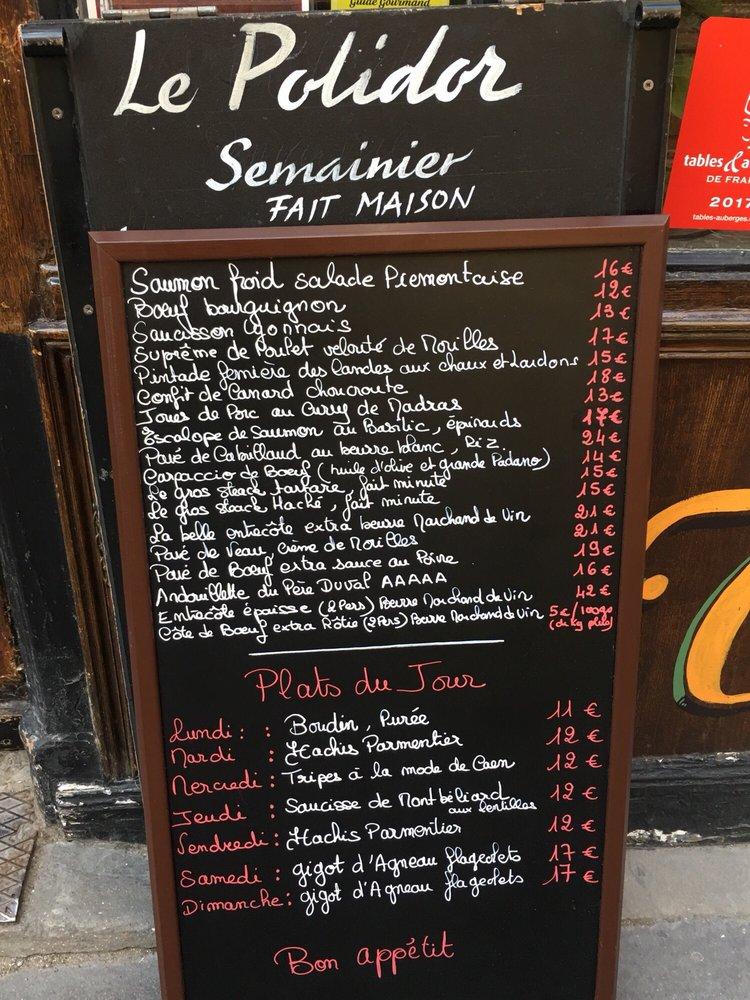 Guide Gourmand
Le Polidor
Semainier
FAIT MAISON
tables & a
DE FRA
2017
tables-auberges.
Saumon froid salade Piemontaise 16€
Bœuf bourguignon 12€
Saucisson Lyonnais 13€
Suprême de Poulet velouté de Morilles 17€
Pintade fermière des Landes aux choux et Lardons 15€
Confit de Canard choucroute 18€
Joues de Porc au Curry de Madras 13€
Escalope de Saumon au Basilic, épinards 17€
Pavé de Cabillaud au beurre blanc, Riz 24€
Carpaccio de Bœuf (huile d'olive et grande Padano) 14€
Le gros steack tartare, fait minute 15€
Le gros steack Haché, fait minute 15€
La belle entrecôte extra beurre Marchand de Vin 21€
Pavé de Veau, crème de Morilles 21€
Pavé de Bœuf extra sauce au Poivre 19€
Andouillette du Père Duval AAAAA 16€
Entrecôte épaisse (2Pers) Beurre Marchand de Vin 42€
Côte de Bœuf extra Rôtie (2Pers) Beurre Marchand de Vin 5€/100g
Plats du Jour
Lundi : : Boudin, Purée 11€
Mardi : Hachis Parmentier 12€
Mercredi : Tripes à la mode de Caen 12€
Jeudi : Saucisse de Montbéliard 12€
aux lentilles
Vendredi : Hachis Parmentier 12€
Samedi : gigot d'Agneau flageolets 17€
Dimanche : gigot d'Agneau flageolets 17€
Bon appétit